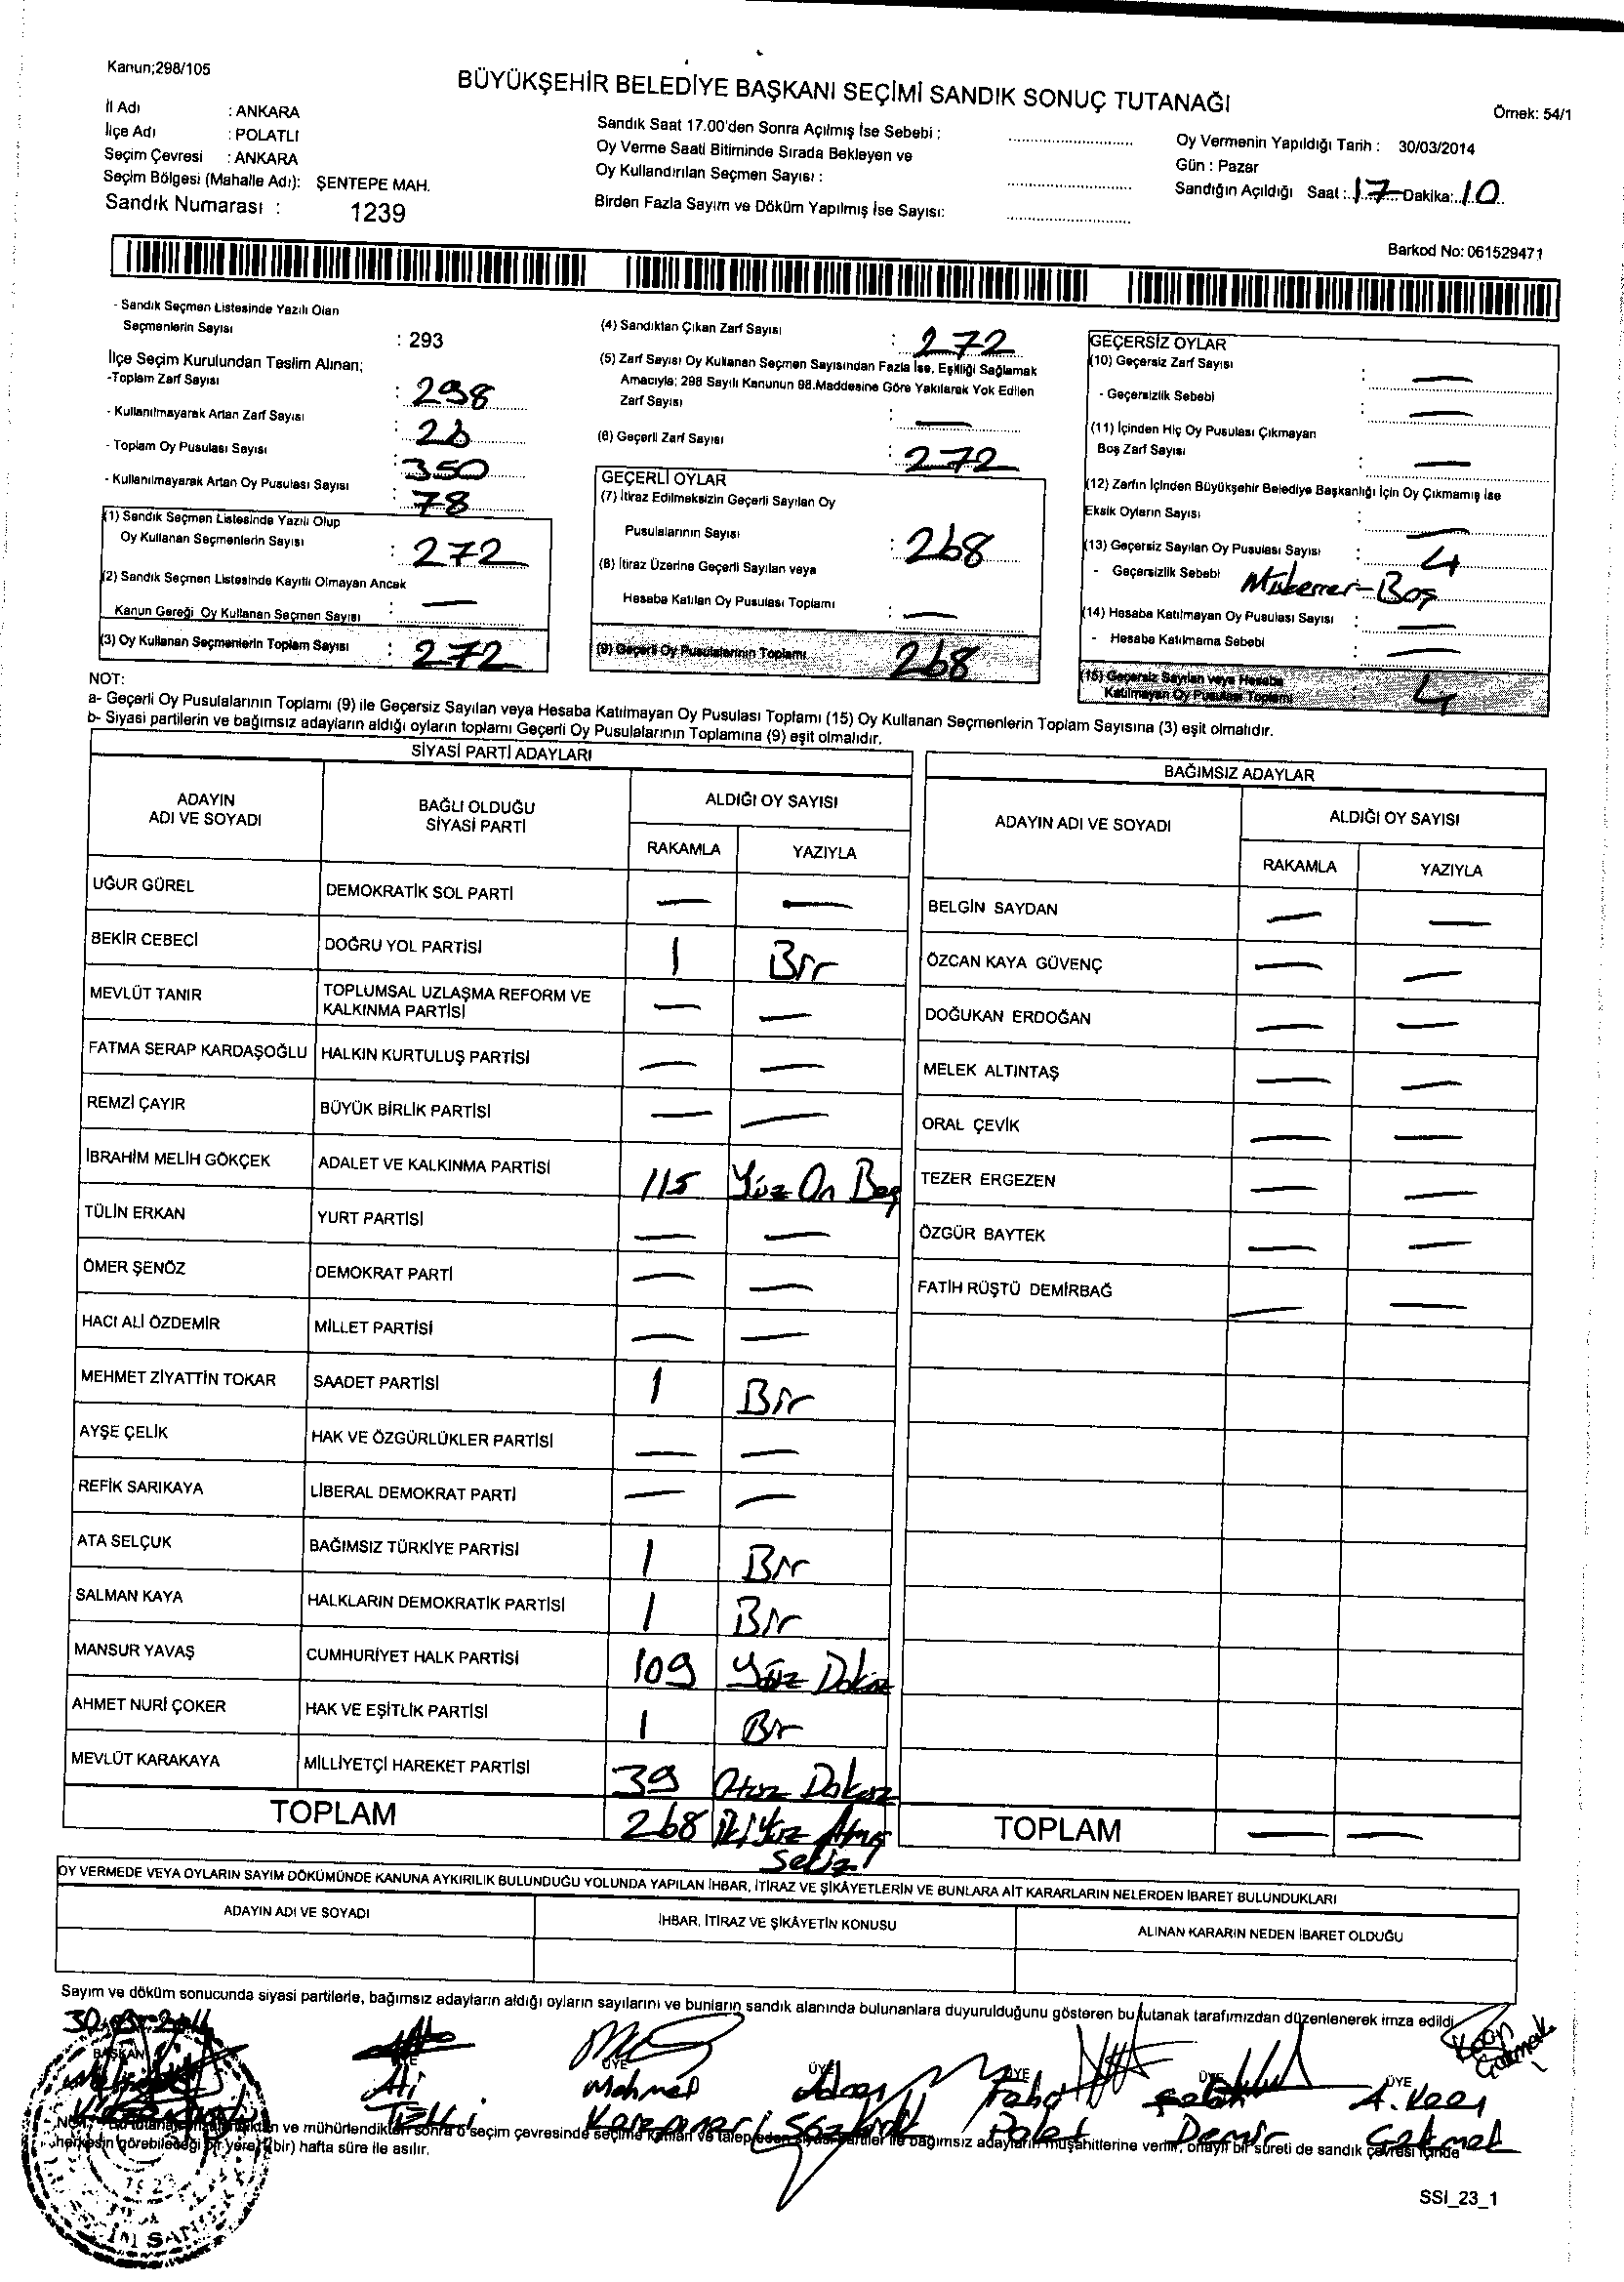 Kanun;298/105
BÜYÜKŞEHİR BELEDİYE BAŞKANI SEÇİMİ SANDIK SONUÇ TUTANAĞI
Örnek: 54/1
İl Adı : ANKARA
İlçe Adı : POLATLI
Seçim Çevresi : ANKARA
Seçim Bölgesi (Mahalle Adı): ŞENTEPE MAH.
Sandık Numarası : 1239
Sandık Saat 17.00'den Sonra Açılmış İse Sebebi :
Oy Verme Saati Bitiminde Sırada Bekleyen ve
Oy Kullandırılan Seçmen Sayısı :
Birden Fazla Sayım ve Döküm Yapılmış İse Sayısı:
Oy Vermenin Yapıldığı Tarih : 30/03/2014
Gün : Pazar
Sandığın Açıldığı Saat : 17 Dakika: 10
Barkod No: 061529471
- Sandık Seçmen Listesinde Yazılı Olan
Seçmenlerin Sayısı : 293
İlçe Seçim Kurulundan Teslim Alınan;
-Toplam Zarf Sayısı : 298
- Kullanılmayarak Artan Zarf Sayısı : 26
- Toplam Oy Pusulası Sayısı : 350
- Kullanılmayarak Artan Oy Pusulası Sayısı : 78
(1) Sandık Seçmen Listesinde Yazılı Olup
Oy Kullanan Seçmenlerin Sayısı : 272
(2) Sandık Seçmen Listesinde Kayıtlı Olmayan Ancak
Kanun Gereği Oy Kullanan Seçmen Sayısı : —
(3) Oy Kullanan Seçmenlerin Toplam Sayısı : 272
(4) Sandıktan Çıkan Zarf Sayısı : 272
(5) Zarf Sayısı Oy Kullanan Seçmen Sayısından Fazla İse, Eşitliği Sağlamak
Amacıyla; 298 Sayılı Kanunun 98.Maddesine Göre Yakılarak Yok Edilen
Zarf Sayısı : —
(6) Geçerli Zarf Sayısı : 272
GEÇERLİ OYLAR
(7) İtiraz Edilmeksizin Geçerli Sayılan Oy
Pusulalarının Sayısı : 268
(8) İtiraz Üzerine Geçerli Sayılan veya
Hesaba Katılan Oy Pusulası Toplamı : —
(9) Geçerli Oy Pusulalarının Toplamı 268
GEÇERSİZ OYLAR
(10) Geçersiz Zarf Sayısı : —
- Geçersizlik Sebebi : —
(11) İçinden Hiç Oy Pusulası Çıkmayan
Boş Zarf Sayısı : —
(12) Zarfın İçinden Büyükşehir Belediye Başkanlığı İçin Oy Çıkmamış İse
Eksik Oyların Sayısı : —
(13) Geçersiz Sayılan Oy Pusulası Sayısı : 4
- Geçersizlik Sebebi Mükerrer-Boş
(14) Hesaba Katılmayan Oy Pusulası Sayısı : —
- Hesaba Katılmama Sebebi : —
(15) Geçersiz Sayılan veya Hesaba
Katılmayan Oy Pusulası Toplamı : 4
NOT:
a- Geçerli Oy Pusulalarının Toplamı (9) ile Geçersiz Sayılan veya Hesaba Katılmayan Oy Pusulası Toplamı (15) Oy Kullanan Seçmenlerin Toplam Sayısına (3) eşit olmalıdır.
b- Siyasi partilerin ve bağımsız adayların aldığı oyların toplamı Geçerli Oy Pusulalarının Toplamına (9) eşit olmalıdır.
SİYASİ PARTİ ADAYLARI
ADAYIN ADI VE SOYADI BAĞLI OLDUĞU SİYASİ PARTİ ALDIĞI OY SAYISI
RAKAMLA YAZIYLA
UĞUR GÜREL DEMOKRATİK SOL PARTİ — —
BEKİR CEBECİ DOĞRU YOL PARTİSİ 1 Bir
MEVLÜT TANIR TOPLUMSAL UZLAŞMA REFORM VE KALKINMA PARTİSİ — —
FATMA SERAP KARDAŞOĞLU HALKIN KURTULUŞ PARTİSİ — —
REMZİ ÇAYIR BÜYÜK BİRLİK PARTİSİ — —
İBRAHİM MELİH GÖKÇEK ADALET VE KALKINMA PARTİSİ 115 Yüz On Beş
TÜLİN ERKAN YURT PARTİSİ — —
ÖMER ŞENÖZ DEMOKRAT PARTİ — —
HACI ALİ ÖZDEMİR MİLLET PARTİSİ — —
MEHMET ZİYATTİN TOKAR SAADET PARTİSİ 1 Bir
AYŞE ÇELİK HAK VE ÖZGÜRLÜKLER PARTİSİ — —
REFİK SARIKAYA LİBERAL DEMOKRAT PARTİ — —
ATA SELÇUK BAĞIMSIZ TÜRKİYE PARTİSİ 1 Bir
SALMAN KAYA HALKLARIN DEMOKRATİK PARTİSİ 1 Bir
MANSUR YAVAŞ CUMHURİYET HALK PARTİSİ 109 Yüz Dokuz
AHMET NURİ ÇOKER HAK VE EŞİTLİK PARTİSİ 1 Bir
MEVLÜT KARAKAYA MİLLİYETÇİ HAREKET PARTİSİ 39 Otuz Dokuz
TOPLAM 268 İki Yüz Atmış Sekiz
BAĞIMSIZ ADAYLAR
ADAYIN ADI VE SOYADI ALDIĞI OY SAYISI
RAKAMLA YAZIYLA
BELGİN SAYDAN — —
ÖZCAN KAYA GÜVENÇ — —
DOĞUKAN ERDOĞAN — —
MELEK ALTINTAŞ — —
ORAL ÇEVİK — —
TEZER ERGEZEN — —
ÖZGÜR BAYTEK — —
FATİH RÜŞTÜ DEMİRBAĞ — —
TOPLAM — —
OY VERMEDE VEYA OYLARIN SAYIM DÖKÜMÜNDE KANUNA AYKIRILIK BULUNDUĞU YOLUNDA YAPILAN İHBAR, İTİRAZ VE ŞİKÂYETLERİN VE BUNLARA AİT KARARLARIN NELERDEN İBARET BULUNDUKLARI
ADAYIN ADI VE SOYADI İHBAR, İTİRAZ VE ŞİKÂYETİN KONUSU ALINAN KARARIN NEDEN İBARET OLDUĞU
Sayım ve döküm sonucunda siyasi partilerle, bağımsız adayların aldığı oyların sayılarını ve bunların sandık alanında bulunanlara duyurulduğunu gösteren bu tutanak tarafımızdan düzenlenerek imza edildi.
BAŞKAN ÜYE ÜYE ÜYE ÜYE ÜYE
Ali Mehmet A. Kaan
Polat Demir Gökmek
ve mühürlendikten sonra o seçim çevresinde seçime katılan ve talep eden siyasi partiler ile bağımsız adayların müşahitlerine verilir, onaylı bir sureti de sandık çevresi içinde
herkesin görebileceği bir yere (bir) hafta süre ile asılır.
SSI_23_1